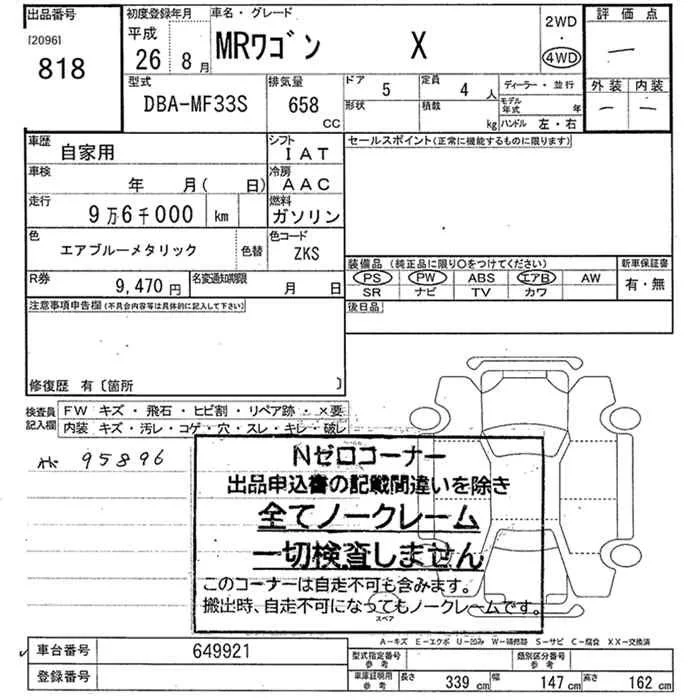 出品番号
[2096]
818
初度登録年月
平成
26年 8月
車名・グレード
MRワゴン X
2WD
・
4WD
評価点
—
外装 内装
— —
型式
DBA-MF33S
排気量
658
CC
ドア 5
定員 4人
形状
積載 kg
ディーラー・並行
モデル年式 年
ハンドル 左・右
車歴 自家用
シフト IAT
セールスポイント(正常に機能するものに限ります)
車検 年 月( 日)
冷房 AAC
走行 9万6千000 km
燃料 ガソリン
色 エアブルーメタリック 色替
色コード ZKS
装備品 (純正品に限り○をつけてください)
新車保証書
PS PW ABS エアB AW
有・無
SR ナビ TV カワ
R券 9,470円
名変通知期限 月 日
後日品
注意事項申告欄(不具合内容等は具体的に記入して下さい)
修復歴 有〔箇所 〕
検査員記入欄
FW キズ・飛石・ヒビ割・リペア跡・×要
内装 キズ・汚レ・コゲ・穴・スレ・キレ・破レ
95896
Nゼロコーナー
出品申込書の記載間違いを除き
全てノークレーム
一切検査しません
このコーナーは自走不可も含みます。
搬出時、自走不可になってもノークレームです。
スペア
A-キズ E-エクボ U-凹み W-補修跡 S-サビ C-腐食 XX-交換済
車台番号 649921
登録番号
型式指定番号 参考
類別区分番号 参考
車庫証明用 参考
長さ 339 cm 幅 147 cm 高さ 162 cm